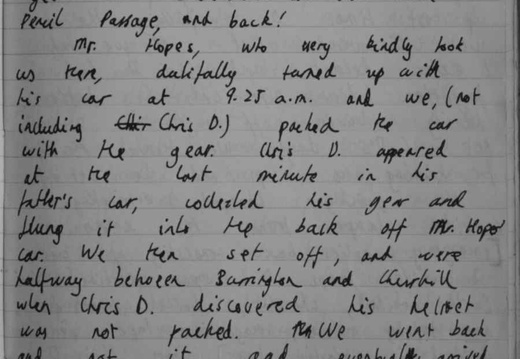 Pencil Passage, and back!
Mr. Hopes, who very kindly took
us there, dutifally turned up with
his car at 9.25 a.m. and we, (not
including Chris D.) packed the car
with the gear. Chris D. appeared
at the last minute in his
father's car, collected his gear and
flung it into the back off Mr. Hopes'
car. We then set off, and were
halfway between Burrington and Churchill
when Chris D. discovered his helmet
was not packed. We went back
and got it and eventually arrived